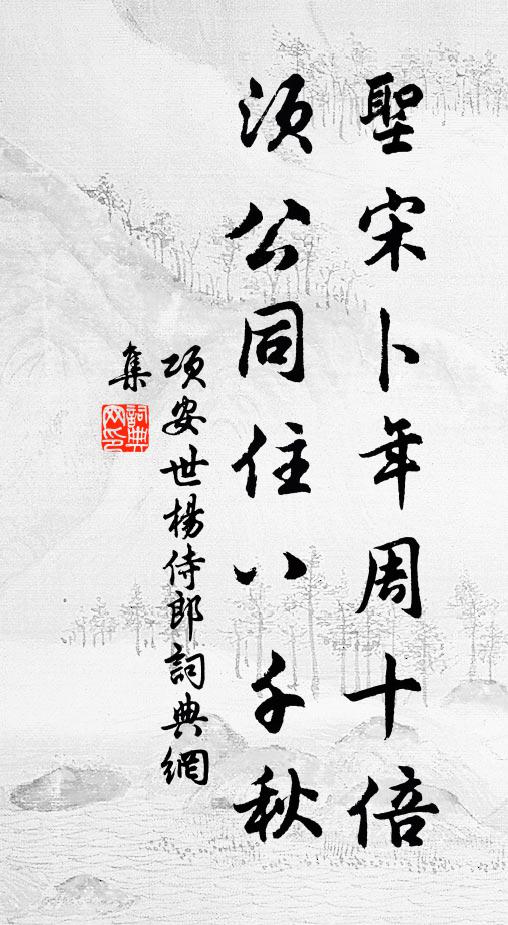 聖宋卜年周十倍
須公同住八千秋
項安世楊侍郎詞典網
集
詞典
网印